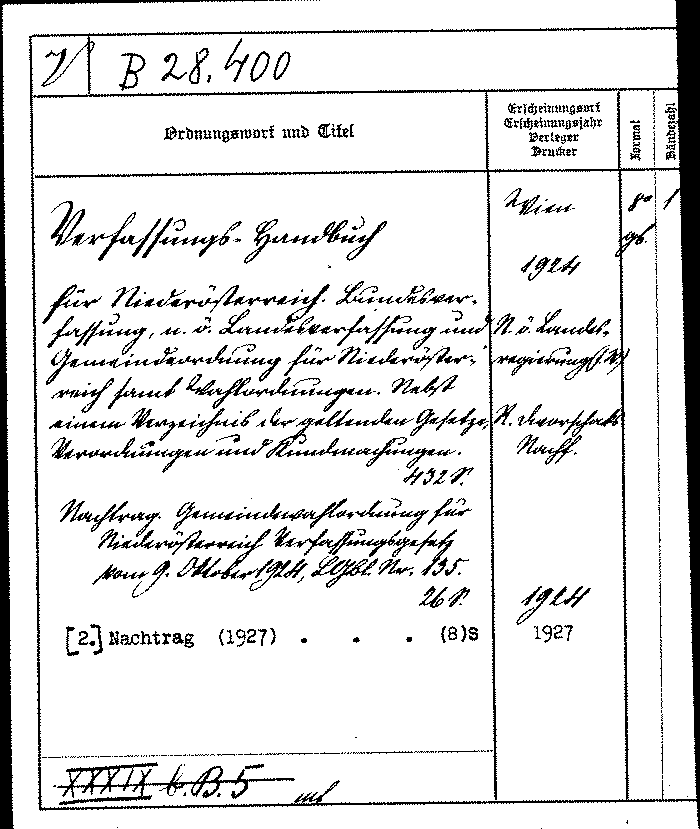 B 28.400
Ordnungswort und Titel
Erscheinungsort
Erscheinungsjahr
Verleger
Drucker
Format
Bändezahl
Verfassungs-Handbuch
Wien
8°
1
gb.
1924
für Niederösterreich. Bundesver-
fassung, n. ö. Landesverfassung und
Gemeindeordnung für Niederöster-
reich samt Wahlordnungen. Nebst
einem Verzeichnis der geltenden Gesetze,
Verordnungen und Kundmachungen.
432 S.
N. ö. Landes-
regierung
R. Dworschaks
Nachf.
Nachtrag. Gemeindewahlordnung für
Niederösterreich Verfassungsgesetz
vom 9. Oktober 1924, LGBl. Nr. 135.
26 S.
1924
[2.] Nachtrag (1927) . . . (8)S
1927
XXXIX b. B. 5